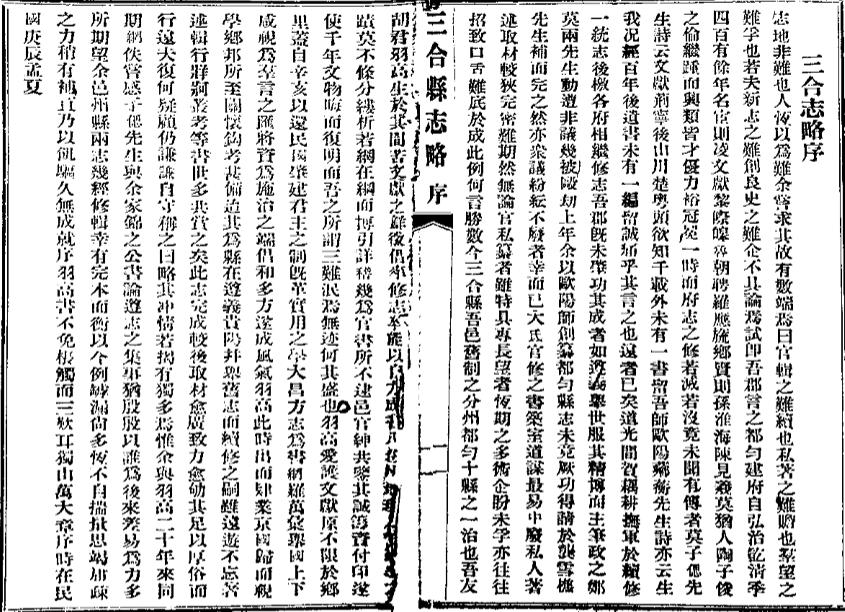 三合志略序
志地非難也人恆以爲難余嘗求其故有數端焉曰官輯之難續也私著之難贍也羣望之
難孚也若夫新志之難創良史之難企不具論焉試卽吾郡言之都勻建府自弘治訖清季
四百有餘年名宦則凌文獻黎際皞尋朝聘羅應旒鄉賢則孫淮海陳見羲莫猶人陶子俊
之倫繼踵而興類皆才優力裕冠冕一時而府志之修若滅若沒竟未聞有傳者莫子偲先
生詩云文獻荊寧後山川楚粵頭欲知千載外未有一書留吾師歐陽藕蘅先生詩亦云生
我況經百年後遺書未有一編留誠痛乎其言之也遠者已矣道光間賀耦耕撫軍於續修
一統志後檄各府相繼修志吾郡旣未蕆功其成者如遵義舉世服其精博而主筆政之鄭
莫兩先生動遭非議幾被毆劫上年余以歐陽師創纂都勻縣志未竟厥功得請於龔雪樵
先生補而完之然亦衆議紛紜不廢者幸而已大氐官修之書築室道謀最易中廢私人著
述取材較狹完密難期然無論官私纂者雖特具專長望者恆期之多術企盼未孚亦往往
招致口舌難底於成此例何言勝數今三合縣吾邑舊制之分州都勻十縣之一治也吾友
三合縣志略 序
胡君羽高生於其間苦文獻之
蹟莫不條分縷析若網在綱而博引詳稽幾爲官書所不逮邑官紳共鑒其誠籌資付印遂
使千年文物晦而復明而吾之所謂三難泯焉無迹何其盛也羽高愛護文獻原不限於鄉
里蓋自辛亥以還民國肇建君主之制旣革實用之學大昌方志爲書網羅萬彙舉國上下
咸視爲羣言之匯將資爲施治之端倡和多方遂成風氣羽高此時出而肄業京國歸而覘
學鄉邦所至關懷鉤考甚備迨其爲縣在遵義貴陽幷舉舊志而續修之嗣雖遠遊不忘著
述輯行牂牁叢考等書世多共賞之矣此志完成較後取材愈廣致力愈劬其足以厚俗而
行遠夫復何疑顧仍謙謙自守稱之曰略其沖懷若揭有獨多焉惟余與羽高二十年來同
期網佚嘗感子偲先生與余家錦之公書論遵志之集事猶殷殷以誰爲後來業易爲力多
所期望余邑州縣兩志幾經修輯幸有完本而衡以今例缺漏尚多恆不自揣量思竭
之力稍有補苴乃以飢驅久無成就序羽高書不免根觸而三歎耳獨山萬大章序時在民
國庚辰孟夏